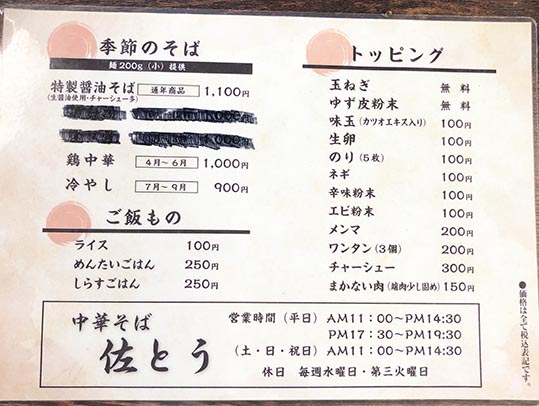 季節のそば
麺200g（小）提供
特製醤油そば 通年商品 1,100円
（生醤油使用・チャーシュー多）
鶏中華 4月～6月 1,000円
冷やし 7月～9月 900円
ご飯もの
ライス 100円
めんたいごはん 250円
しらすごはん 250円
トッピング
玉ねぎ 無料
ゆず皮粉末 無料
味玉（カツオエキス入り） 100円
生卵 100円
のり（5枚） 100円
ネギ 100円
辛味粉末 100円
エビ粉末 100円
メンマ 200円
ワンタン（3個） 200円
チャーシュー 300円
まかない肉（端肉少し固め） 150円
●価格は全て税込表記です。
中華そば
佐とう
営業時間（平日）AM11：00～PM14:30
PM17：30～PM19:30
（土・日・祝日）AM11：00～PM14:30
休日 毎週水曜日・第三火曜日